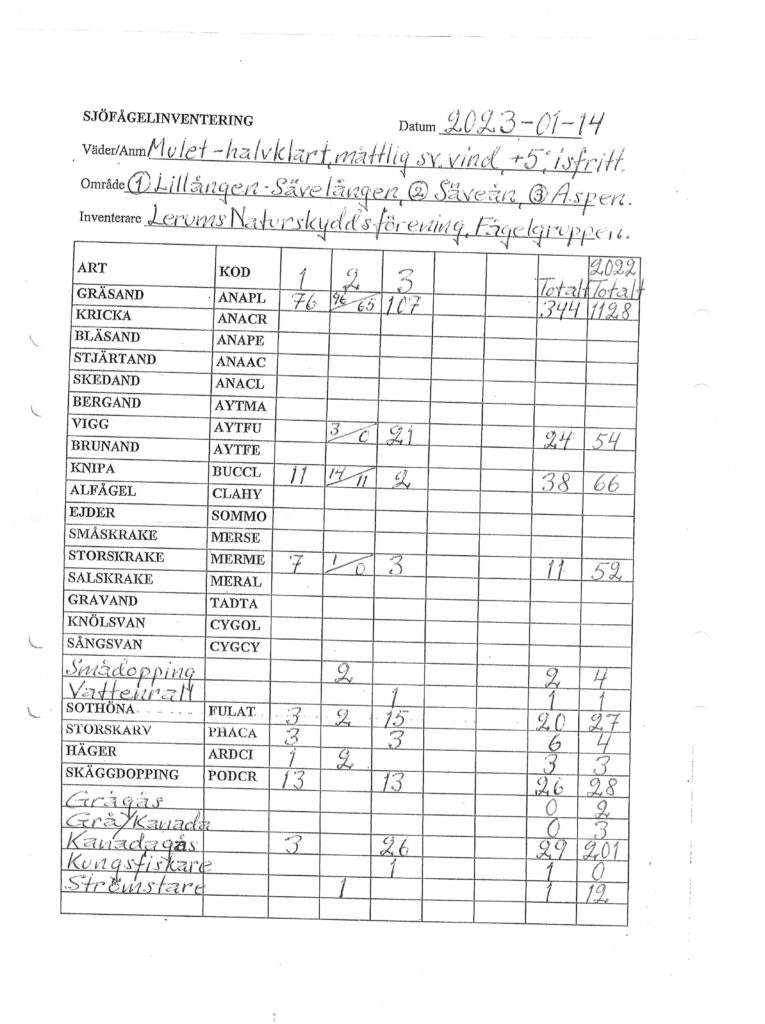 SJÖFÅGELINVENTERING Datum 2023-01-14
Väder/Anm Mulet-halvklart, måttlig sv. vind, +5°, isfritt.
Område ① Lillången-Sävelången, ② Säveån, ③ Aspen.
Inventerare Lerums Naturskyddsförening, Fågelgruppen.
ART KOD 1 2 3 Totalt 2022 Totalt
GRÄSAND ANAPL 76 96/65 107 344 1128
KRICKA ANACR
BLÄSAND ANAPE
STJÄRTAND ANAAC
SKEDAND ANACL
BERGAND AYTMA
VIGG AYTFU 3/0 21 24 54
BRUNAND AYTFE
KNIPA BUCCL 11 14/11 2 38 66
ALFÅGEL CLAHY
EJDER SOMMO
SMÅSKRAKE MERSE
STORSKRAKE MERME 7 1/0 3 11 52
SALSKRAKE MERAL
GRAVAND TADTA
KNÖLSVAN CYGOL
SÅNGSVAN CYGCY
Smådopping 2 2 4
Vattenrall 1 1 1
SOTHÖNA FULAT 3 2 15 20 27
STORSKARV PHACA 3 3 6 4
HÄGER ARDCI 1 2 3 3
SKÄGGDOPPING PODCR 13 13 26 28
Grågås 0 2
Grå/Kanada 0 3
Kanadagås 3 26 29 201
Kungsfiskare 1 1 0
Strömstare 1 1 12